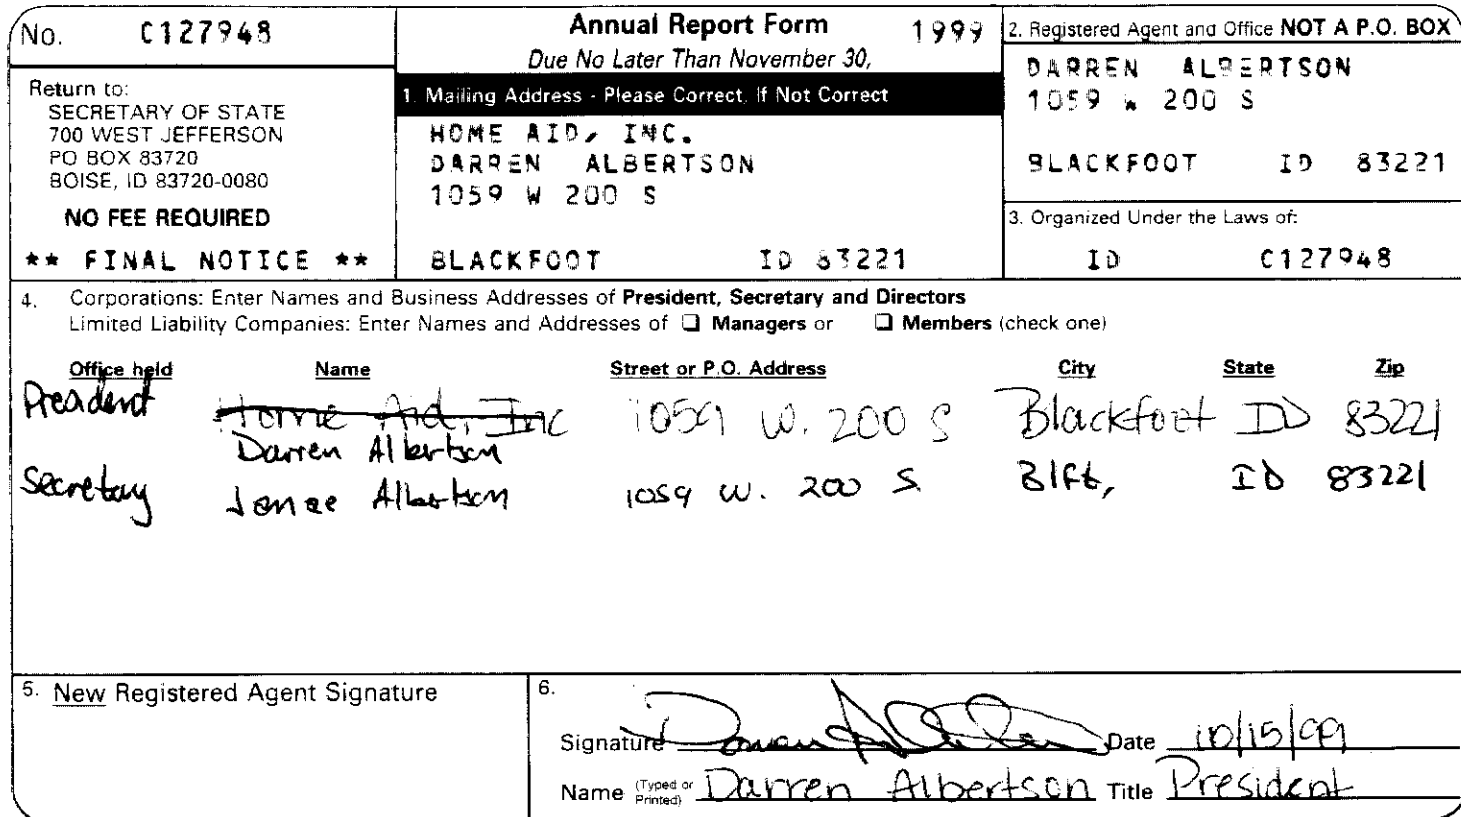 No. C127948
Return to:
SECRETARY OF STATE
700 WEST JEFFERSON
PO BOX 83720
BOISE, ID 83720-0080
NO FEE REQUIRED
** FINAL NOTICE **
Annual Report Form 1999
Due No Later Than November 30,
1. Mailing Address - Please Correct, If Not Correct
HOME AID, INC.
DARREN ALBERTSON
1059 W 200 S
BLACKFOOT ID 83221
2. Registered Agent and Office NOT A P.O. BOX
DARREN ALBERTSON
1059 W 200 S
BLACKFOOT ID 83221
3. Organized Under the Laws of:
ID C127948
4. Corporations: Enter Names and Business Addresses of President, Secretary and Directors
Limited Liability Companies: Enter Names and Addresses of ❑ Managers or ❑ Members (check one)
Office held Name Street or P.O. Address City State Zip
President Home Aid, Inc 1059 W. 200 S Blackfoot ID 83221
Darren Albertson
Secretary Janae Albertson 1059 W. 200 S. Blft, ID 83221
5. New Registered Agent Signature
6.
Signature Darren Albertson Date 10/15/99
Name (Typed or Printed) Darren Albertson Title President